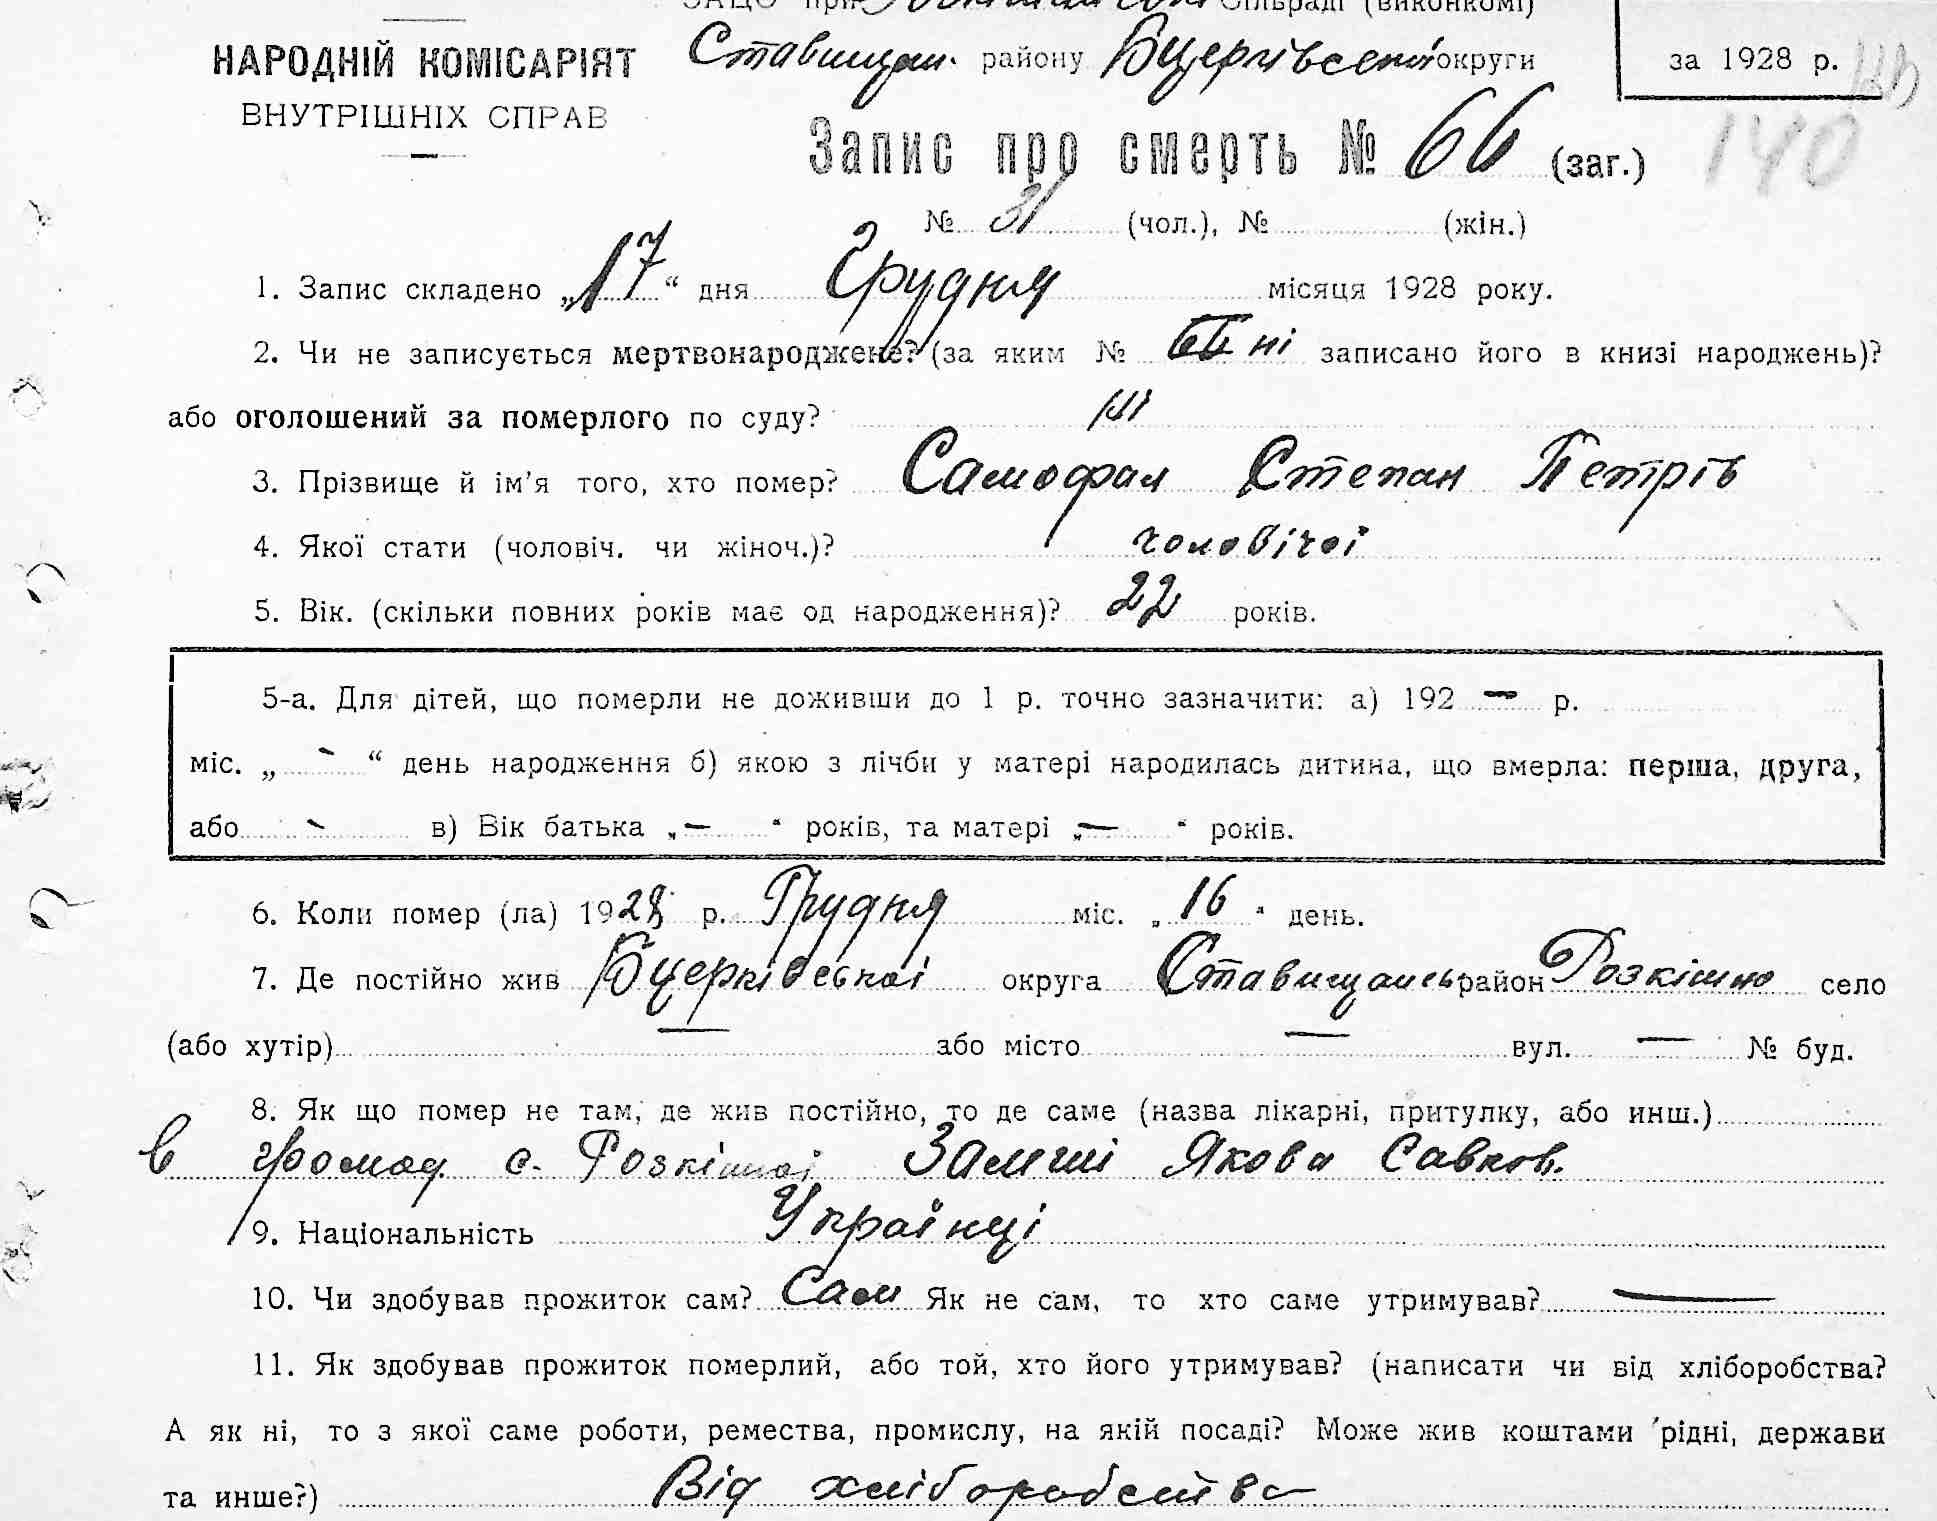 ЗАЦС при Сільраді (виконкомі)
НАРОДНІЙ КОМІСАРІЯТ
ВНУТРІШНІХ СПРАВ
Ставищан. району Бцерківської округи
за 1928 р.
140
Запис про смерть № 66 (заг.)
№ 31 (чол.), № (жін.)
1. Запис складено „17“ дня Грудня місяця 1928 року.
2. Чи не записується мертвонароджене? (за яким № ні записано його в книзі народжень)?
або оголошений за померлого по суду? ні
3. Прізвище й ім'я того, хто помер? Самофал Степан Петрів
4. Якої стати (чоловіч. чи жіноч.)? чоловічої
5. Вік. (скільки повних років має од народження)? 22 років.
5-а. Для дітей, що померли не доживши до 1 р. точно зазначити: а) 192 — р.
міс. „ - “ день народження б) якою з лічби у матері народилась дитина, що вмерла: перша, друга,
або - в) Вік батька „—“ років, та матері „—“ років.
6. Коли помер (ла) 1928 р. Грудня міс. „16“ день.
7. Де постійно жив Бцерківської округа Ставищансь район Розкішно село
(або хутір) — або місто — вул. — № буд.
8. Як що помер не там, де жив постійно, то де саме (назва лікарні, притулку, або инш.)
в громад с. Розкішної Замші Якова Савков.
9. Національність Українці
10. Чи здобував прожиток сам? Сам Як не сам, то хто саме утримував? —
11. Як здобував прожиток померлий, або той, хто його утримував? (написати чи від хліборобства?
А як ні, то з якої саме роботи, ремества, промислу, на якій посаді? Може жив коштами рідні, держави
та инше?) Від хліборобства